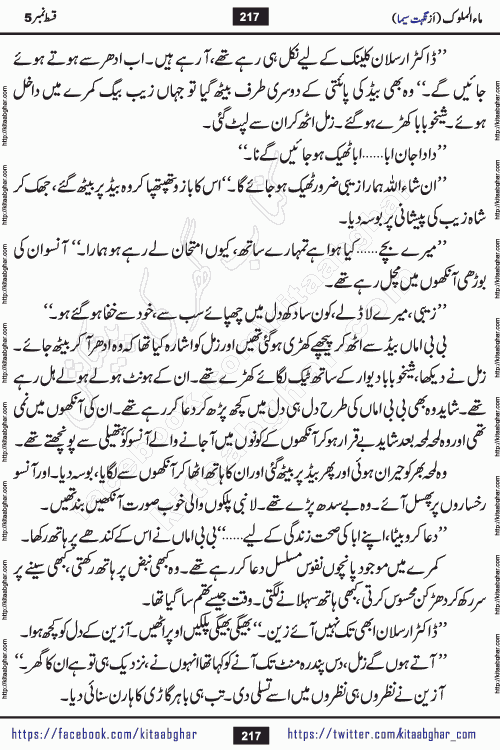 ماءالملوک (از نگہت سیما)
217
قسط نمبر 5
’’ڈاکٹر ارسلان کلینک کے لیے نکل ہی رہے تھے، آ رہے ہیں۔ اب ادھر سے ہوتے ہوئے
جائیں گے۔‘‘ وہ بھی بیڈ کی پائنتی کے دوسری طرف بیٹھ گیا تو جہاں زیب بیگ کمرے میں داخل
ہوئے۔ شیخو بابا کھڑے ہو گئے۔ زمل اٹھ کر ان سے لپٹ گئی۔
’’دادا جان ابا......ابا ٹھیک ہو جائیں گے نا۔‘‘
’’ان شاءاللہ ہمارا زیبی ضرور ٹھیک ہو جائے گا۔‘‘ اس کا بازو تھپتھپا کر وہ بیڈ پر بیٹھ گئے، جھک کر
شاہ زیب کی پیشانی پر بوسہ دیا۔
’’میرے بچے......کیا ہوا ہے تمہارے ساتھ، کیوں امتحان لے رہے ہو ہمارا۔‘‘ آنسو ان کی
بوڑھی آنکھوں میں مچل رہے تھے۔
’’زیبی، میرے لاڈلے، کون سا دکھ دل میں چھپائے سب سے، خود سے خفا ہو گئے ہو۔‘‘
بی بی اماں بیڈ سے اٹھ کر پیچھے کھڑی ہو گئی تھیں اور زمل کو اشارہ کیا تھا کہ وہ ادھر آ کر بیٹھ جائے۔
زمل نے دیکھا، شیخو بابا دیوار کے ساتھ ٹیک لگائے کھڑے تھے۔ ان کے ہونٹ ہولے ہولے ہل رہے
تھے۔ شاید وہ بھی بی بی اماں کی طرح دل ہی دل میں کچھ پڑھ کر دعا کر رہے تھے۔ ان کی آنکھوں میں نمی
تھی اور وہ لمحہ لمحہ بعد شاید بے قرار ہو کر آنکھوں کے کونوں میں آ جانے والے آنسو کو ہتھیلی سے پونچھتے تھے۔
وہ لمحہ بھر کو حیران ہوئی اور پھر بیڈ پر بیٹھ گئی اور ان کا ہاتھ اٹھا کر آنکھوں سے لگایا، بوسہ دیا۔ اور آنسو
رخساروں پر پھسل آئے۔ وہ بے سدھ پڑے تھے۔ لانبی پلکوں والی خوب صورت آنکھیں بند تھیں۔
’’دعا کرو بیٹا، اپنے ابا کی صحت زندگی کے لیے......‘‘ بی بی اماں نے اس کے کندھے پر ہاتھ رکھا۔
کمرے میں موجود پانچوں نفوس مسلسل دعا کر رہے تھے۔ وہ کبھی نبض پر ہاتھ رکھتی، کبھی سینے پر
سر رکھ کر دھڑکن محسوس کرتی، کبھی ہاتھ سہلانے لگتی۔ وقت جیسے تھم سا گیا تھا۔
’’ڈاکٹر ارسلان ابھی تک نہیں آئے زین۔‘‘ بھیگی بھیگی پلکیں اوپر اٹھیں۔ آ زین کے دل کو کچھ ہوا۔
’’آتے ہوں گے زمل، دس پندرہ منٹ تک آنے کو کہا تھا انہوں نے، نزدیک ہی تو ہے ان کا گھر۔‘‘
آ زین نے نظروں ہی نظروں میں اسے تسلی دی۔ تب ہی باہر گاڑی کا ہارن سنائی دیا۔
https://facebook.com/kitaabghar
217
https://twitter.com/kitaabghar_com
http://kitaabghar.com